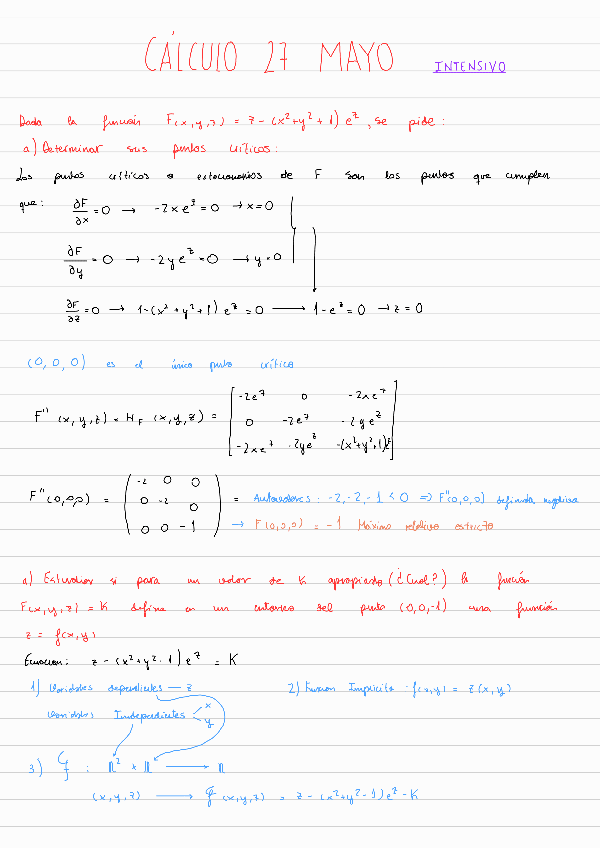 CÁLCULO 27 MAYO INTENSIVO
Dada la función F(x,y,z) = z-(x²+y²+1)e^z, se pide:
a) Determinar sus puntos críticos:
Los puntos críticos o estacionarios de F son los puntos que cumplen
que: ∂F/∂x = 0 → -2xe^z = 0 → x=0
∂F/∂y = 0 → -2ye^z = 0 → y=0
∂F/∂z = 0 → 1-(x²+y²+1)e^z = 0 → 1-e^z = 0 → z = 0
(0,0,0) es el único punto crítico
F''(x,y,z) = H_F (x,y,z) = [ -2e^z 0 -2xe^z
0 -2e^z -2ye^z
-2xe^z -2ye^z -(x²+y²+1)e^z ]
F''(0,0,0) = ( -2 0 0
0 -2 0
0 0 -1 )
= Autovalores: -2,-2,-1 < 0 ⇒ F''(0,0,0) definida negativa
→ F(0,0,0) = -1 Máximo relativo estricto
a) Estudiar si para un valor de K apropiado (¿Cual?) la función
F(x,y,z) = K define en un entorno del punto (0,0,-1) una función
z = f(x,y)
Ecuacion: z-(x²+y²-1)e^z = K
1) Variables dependientes — z
2) Funcion Implicita f(x,y) = z(x,y)
Variables Independientes < x
y
3) F : ℝ² × ℝ → ℝ
(x,y,z) → F(x,y,z) = z-(x²+y²-1)e^z-K